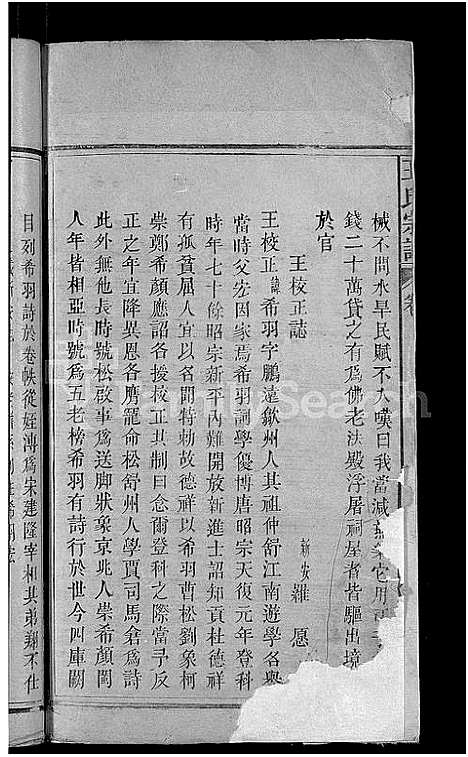 王氏宗譜
卷
械不問水旱民賦不入嘆曰我當減
它用
錢二十萬貸之有爲佛老法殿浮屠祠屋者皆驅出境
於官
王校正誌
新安羅愿
王校正諱希羽字鵬遠歙州人其祖仲舒江南遊學名輿
當時父宏因家焉希羽詞學優博唐昭宗天復元年登科
時年七十餘昭宗新平內難開放新進士詔知貢杜德祥
有孤貧屈人宜以名聞特勅放德祥以希羽曹松劉象柯
崇鄭希顏應詔各援校正其制曰念爾登科之際當予反
正之年宜降異恩各膺寵命松舒州人學賈司馬舍爲詩
此外無他長時號松啟事爲送脚狀象京兆人崇希顏閩
人年皆相亞時號爲五老榜希羽有詩行於世今四庫闕
目列希羽詩於卷帙從姪溥爲宋建隆宰相其弟翔不仕
FamilySearch